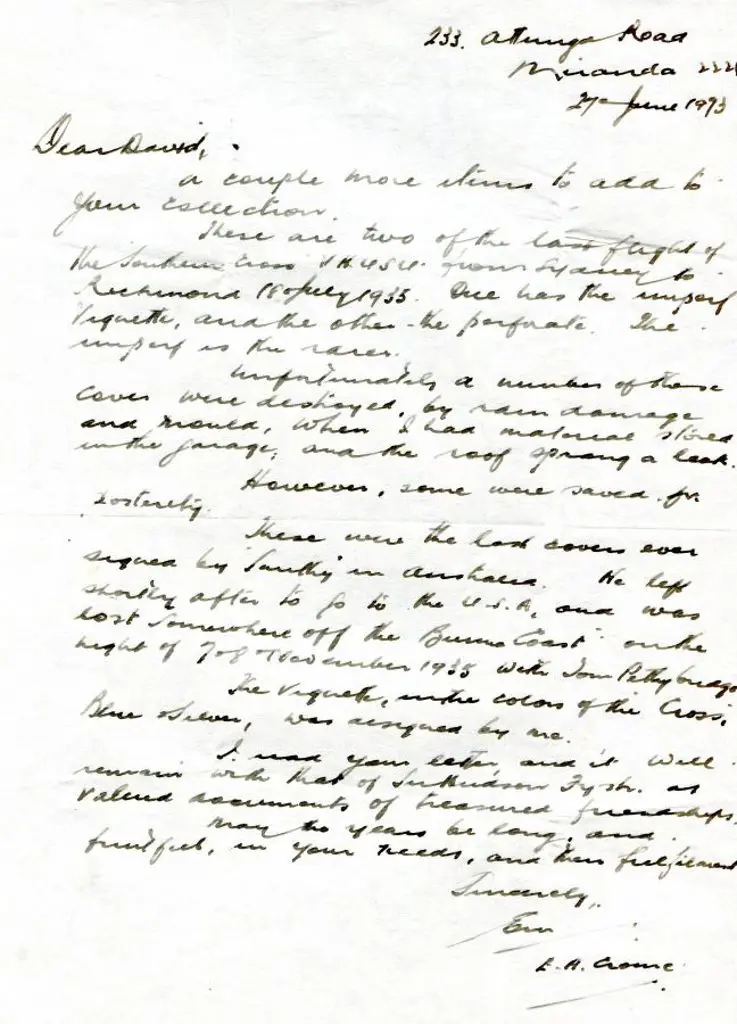 233. Attunga Road
Miranda 222
27th June 1973
Dear David,
A couple more items to add to
your collection.
These are two of the last flight of
the Southern Cross VH.USU. from Sydney to
Richmond 18 July 1935. One has the imperf
Viquette, and the other - the perforate. The
imperf is the rarer.
Unfortunately a number of these
covers were destroyed, by rain damage
and mould, when I had material stored
in the garage, and the roof sprang a leak.
However, some were saved for
Posterity.
These were the last covers ever
signed by 'Smithy' in Australia. He left
shortly after to go to the U.S.A, and was
lost somewhere off the Burma Coast on the
night of 7/8 November 1935 with Tom Pethybridge
The Viquette, in the colors of the Cross,
Blue & Silver, was designed by me.
I read your letter, and it will
remain with that of Sir Hudson Fysh. as
valued documents of treasured friendships.
May the years be long, and
fruitful, in your needs, and their fulfilment
Sincerely,
Ern
E. A. Crome